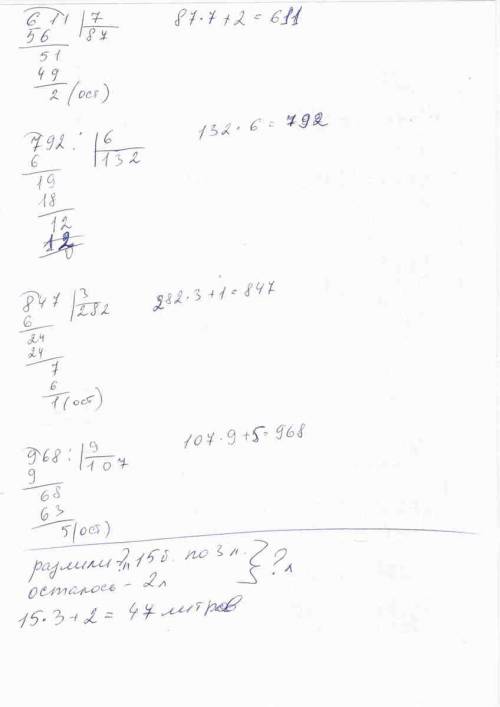 611 | 7 87·7+2=611
56 | 87
51
49
2 (ост)
792 : | 6 132·6=792
6 | 132
19
18
12
12
0
847 | 3 282·3+1=847
6 | 282
24
24
7
6
1(ост)
968 : | 9 107·9+5=968
9 | 107
68
63
5(ост)
разлили ?л 15б. по 3 л. } ?л
осталось - 2л
15·3+2 = 47 литров